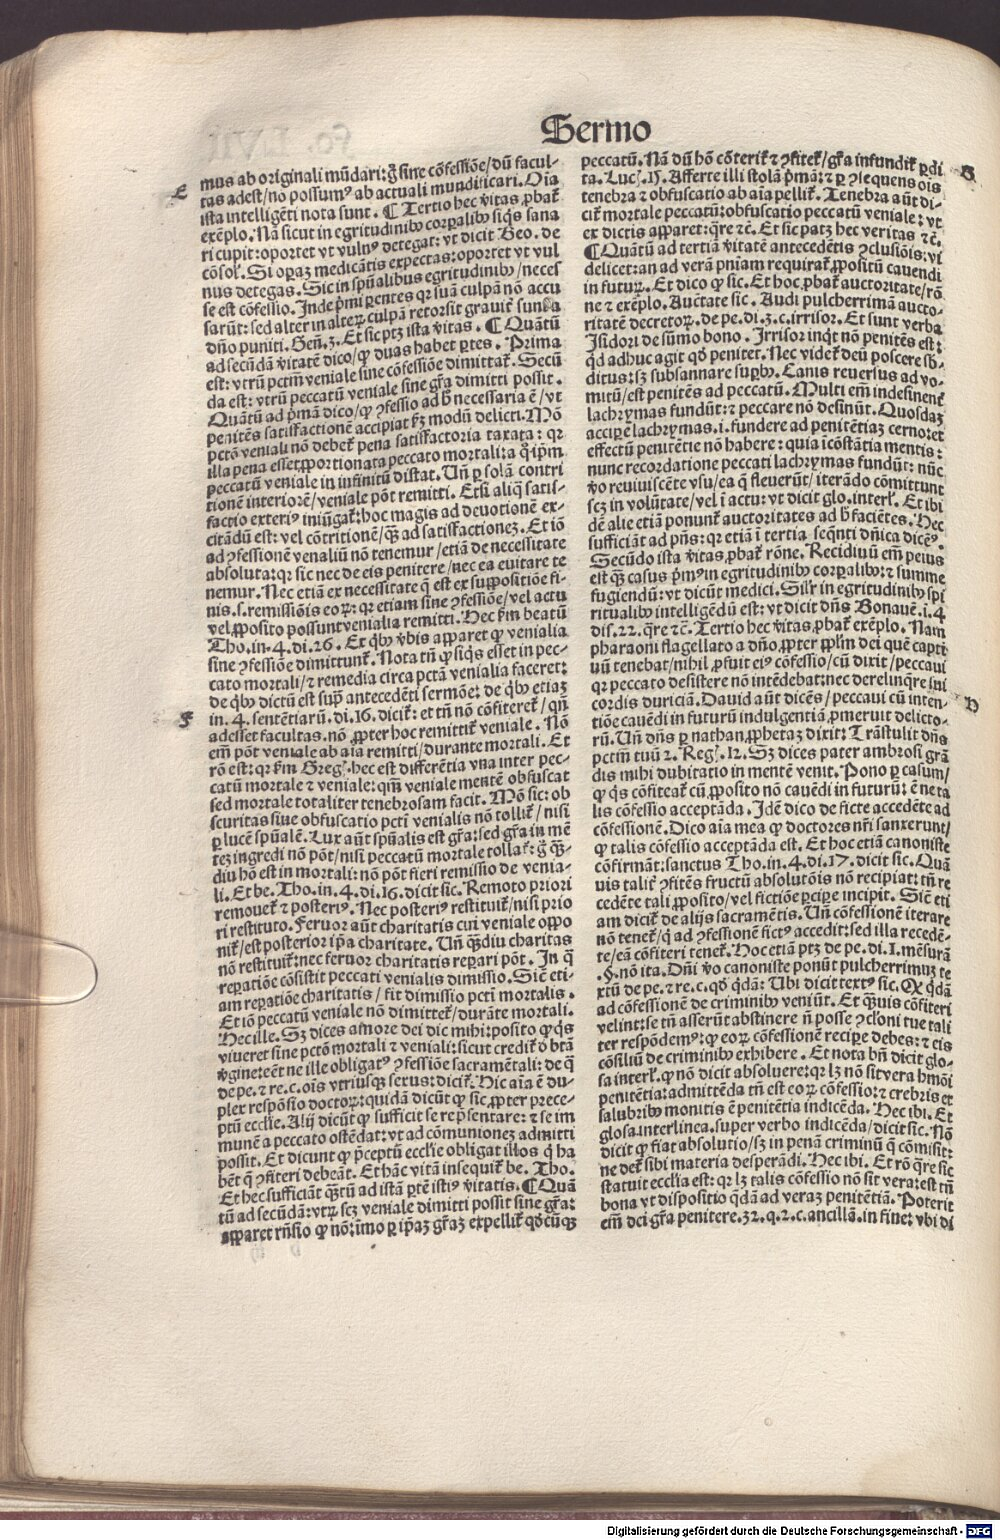 Sermo
E
mus ab originali mũdari: g̃ sine cõfessiõe/ dũ facul-
tas adest/ no possumꝰ ab actuali mundificari. Oĩa
ista intelligẽti nota sunt. ¶ Tertio hec ṽitas ꝓbat̃
exẽplo. Nã sicut in egritudinibꝰ corꝑalibꝰ siq̃s sana
ri cupit: oportet vt vulnꝰ detegat: vt dicit Beo. de
cõsol̃. Si oꝑaꝫ medicãtis expectas: oportet vt vul
nus detegas. Sic in spũalibus egritudinibꝰ/ neces
se est cõfessio. Inde p̃mi ꝑentes qꝛ suã culpã nõ accu
sarũt: sed alter in alteꝝ culpã retorsit grauit̃ sunt a
dño puniti. Geñ. 3. Et sic ptꝫ ista ṽitas. ¶ Quãtũ
ad secũdã ṽitatẽ dico/ ꝙ duas habet ꝑtes. Prima
est: vtrũ pctm̃ veniale sine cõfessiõe dimittat̃. Secũ
da est: vtrũ peccatũ veniale sine gr̃a dimitti possit.
Quãtũ ad p̃mã dico/ ꝙ ꝯfessio ad ħ necessaria ẽ/ vt
penitẽs satisfactionẽ accipiat p̃ꝫ modũ delicti. Mõ
pctõ veniali nõ debet̃ pena satisfactoria taxata: qꝛ
illa pena esset ꝓportionata peccato mortali: a q̃ ip̃m
peccatũ veniale in infinitũ distat. Uñ ꝑ solã contri
tionẽ interiorẽ/ veniale põt remitti. Etsi aliq̃ satis-
factio exteriꝰ iniũgat̃: hoc magis ad deuotionẽ ex-
citãdũ est: vel cõtritionẽ/ q̃ꝫ ad satisfactioneꝫ. Et iõ
ad ꝯfessionẽ venaliũ nõ tenemur/ etiã de necessitate
absoluta: qꝛ sic nec de eis penitere/ nec ea euitare te
nemur. Nec etiã ex necessitate q̃ est ex suppositiõe fi-
nis. s. remissiõis eoꝝ: qꝛ etiam sine ꝯfessiõe/ vel actu
vel ꝓposito possunt venialia remitti. Hec p̃m beatũ
Tho. in. 4. di. 26. Ex q̃bꝰ ṽbis apparet ꝙ venialia
sine ꝯfessione dimittunt̃. Nota tñ ꝙ siq̃s esset in pec-
cato mortali/ ⁊ remedia circa pctã venialia faceret:
de q̃bꝰ dictũ est sup̃ antecedẽti sermõe: de q̃bꝰ etiaꝫ
F
in. 4. sentẽtiarũ. di. 16. dicit̃: et tñ nõ cõfiteret̃/ qñ
adesset facultas. nõ ꝓpter hoc remittit̃ veniale. Nõ
em̃ põt veniale ab aĩa remitti/ durante mortali. Et
rõ est: qꝛ p̃m Gregꝭ. hec est differẽtia vna inter pec-
catũ mortale ⁊ veniale: qm̃ veniale mentẽ obfuscat
sed mortale totaliter tenebrosam facit. Mõ sic: ob
scuritas siue obfuscatio pcti venialis nõ tollit̃/ nisi
ꝑ lucẽ spũalẽ. Lux aũt spũalis est gr̃a: sed gr̃a in mẽ
teꝫ ingredi nõ põt/ nisi peccatũ mortale tollat̃: g̃ q̃ꝫ-
diu hõ est in mortali: nõ põt fieri remissio de venia-
li. Et be. Tho. in. 4. di. 16. dicit sic. Remoto priori
remouet̃ ⁊ posteriꝰ. Nec posteriꝰ restituit̃/ nisi prio
ri restituto. Feruor aũt charitatis cui veniale oppo
nit̃/ est posterior ip̃a charitate. Uñ q̃ꝫdiu charitas
nõ restituit̃: nec feruor charitatis reꝑari põt. In q̃
reꝑatiõe cõsistit peccati venialis dimissio. Siẽ eti-
am reꝑatiõe charitatis/ fit dimissio pcti mortalis.
Et iõ peccatũ veniale nõ dimittet̃/ durãte mortali.
Hec ille. Sꝫ dices amore dei dic mihi: posito ꝙ q̃s
viueret sine pctõ mortali ⁊ veniali: sicut credit̃ ð btã
ṽgine: eẽt ne ille obligatꝰ ꝯfessiõe sacramẽtali: de q̃
de pe. ⁊ re. c. oĩs vtriusqꝫ sexus: dicit̃. Hic aĩa ẽ du-
plex respõsio doctoꝝ: quidã dicũt ꝙ sic. ꝓpter prece-
ptũ ecclie. Alij dicũt ꝙ sufficit se rep̃sentare: ⁊ se im
munẽ a peccato ostẽdat: vt ad cõmunioneꝫ admitti
possit. Et dicunt ꝙ p̃ceptũ ecclie obligat illos q̃ ha
bẽt q̃ ꝯfiteri debeãt. Et hãc vitã insequit̃ be. Tho.
Et hec sufficiãt q̃tũ ad istã ꝑtẽ istiꝰ ṽitatis. ¶ Quã
tũ ad secũdã: vtꝝ scꝫ veniale dimitti possit sine gr̃a:
apparet rñsio ꝙ nõ: imo ꝑ ip̃aꝫ gr̃aꝫ expellit̃ qðcũqꝫ
peccatũ. Nã dũ hõ cõterit̃ ⁊ ꝯfitet̃/ gr̃a infundit̃ ꝑdi
G
ta. Lucꝭ. 15. Afferte illi stolã p̃mã: ⁊ ꝑ ꝯsequens oĩs
tenebra ⁊ obfuscatio ab aĩa pellit̃. Tenebra aũt di-
cit̃ mortale peccatũ: obfuscatio peccatũ veniale: vt
ex dictis apparet: q̃re ⁊c̃. Et sic patꝫ hec veritas ⁊c̃.
¶ Quãtũ ad tertiã ṽitatẽ antecedẽtis ꝯclusiõis: vi
delicet: an ad verã pñiam requirat̃ ꝓpositũ cauendi
in futuꝝ. Et dico ꝙ sic. Et hoc ꝓbat̃ auctoritate/ rõ
ne ⁊ exẽplo. Auctate sic. Audi pulcherrimã aucto-
ritatẽ decretoꝝ. de pe. di. 3. c. irrisor. Et sunt verba
Isidori de sũmo bono. Irrisor inq̃t nõ penitẽs est:
q̃d adhuc agit qð penitet. Nec videt̃ deũ poscere sb̃-
ditus: sꝫ subsannare suꝑbꝰ. Canis reuersus ad vo-
mitũ/ est penitẽs ad peccatũ. Multi em̃ indesinent̃
lachrymas fundũt: ⁊ peccare nõ desinũt. Quosdaꝫ
acciꝑe lachrymas. i. fundere ad penitẽtiaꝫ cerno: et
effectũ penitẽtie nõ habere: quia icõstãtia mentis:
nunc recordatione peccati lachrymas fundũt: nũc
ṽo reuiuiscẽte vsu/ ea q̃ fleuerũt/ iterãdo cõmittunt
scꝫ in volũtate/ vel i actu: vt dicit glo. interl̃. Et ibi
dẽ alie etiã ponunt̃ auctoritates ad ħ faciẽtes. Hec
sufficiãt ad p̃ñs: qꝛ etiã i tertia seq̃nti dñica dicẽꝰ.
Secũdo ista ṽitas ꝓbat̃ rõne. Recidiuũ em̃ peius
est q̃ꝫ casus p̃mꝰ in egritudinibꝰ corꝑalibꝰ: ⁊ summe
fugiendũ: vt dicũt medici. Silr̃ in egritudinibꝰ spi
ritualibꝰ intelligẽdũ est: vt dicit dñs Bonauẽ. i. 4
dis. 22. q̃re ⁊c̃. Tertio hec ṽitas ꝓbat̃ exẽplo. Nam
pharaoni flagellato a dño. ꝓpter ppl̃m dei quẽ capti
uũ tenebat/ nihil ꝓfuit eiꝰ cõfessio/ cũ dixit/ peccaui
qꝛ peccato desistere nõ intẽdebat: nec derelinq̃re ini
H
cordis duriciã. Dauid aũt dicẽs/ peccaui cũ inten-
tiõe cauẽdi in futurũ indulgentiã ꝓmeruit delicto-
rũ. Uñ dñs ꝑ nathan ꝓphetaꝫ dixit: Trãstulit dñs
pctm̃ tuũ 2. Regꝭ. 12. Sꝫ dices pater ambrosi grã
dis mihi dubitatio in mentẽ venit. Pono ꝑ casum/
ꝙ q̃s cõfiteat̃ cũ ꝓposito nõ cauẽdi in futurũ: ẽ ne ta
lis cõfessio acceptãda. Idẽ dico de ficte accedẽte ad
cõfessionẽ. Dico aĩa mea ꝙ doctores nr̃i sanxerunt/
ꝙ talis cõfessio acceptãda est. Et hoc etiã canoniste
cõfirmãt: sanctus Tho. in. 4. di. 17. dicit sic. Quã
uis talit̃ ꝯfitẽs fructũ absolutõis nõ recipiat: tñ re
cedẽte tali ꝓposito/ vel fictiõe ꝑciꝑe incipit. Siẽ eti
am dicit̃ de alijs sacramẽtis. Uñ cõfessionẽ iterare
nõ tenet̃/ q̃ ad ꝯfessionẽ fictꝰ accedit: sed illa recedẽ-
te/ eã cõfiteri tenet̃. Hoc etiã ptꝫ de pe. di. 1. mẽsurã
.§. nõ ita. Dñi ṽo canoniste ponũt pulcherrimuꝫ te
xtũ de pe. ⁊ re. c. qð q̃dã: Ubi dicit textꝰ sic. Qð q̃dã
ad cõfessionẽ de criminibꝰ veniũt. Et q̃uis cõfiteri
velint: se tñ asserũt abstinere ñ posse ꝯcloni tue tali
ter respõdemꝰ: ꝙ eoꝝ cõfessionẽ reciꝑe debes: ⁊ eis
cõsiliũ de criminibꝰ exhibere. Et nota bñ dicit glo-
sa interl̃. ꝙ nõ dicit absoluere: qꝛ lꝫ nõ sit vera hmõi
penitẽtia: admittẽda tñ est eoꝝ cõfessio: ⁊ crebris et
salubribꝰ monitis ẽ penitẽtia indicẽda. Hec ibi. Et
glosa interlinea. super verbo indicẽda/ dicit sic. Nõ
dicit ꝙ fiat absolutio/ sꝫ in penã criminũ q̃ cõmisit:
ne det̃ sibi materia desperãdi. Hec ibi. Et rõ q̃re sic
statuit ecclia est: qꝛ lꝫ talis cõfessio nõ sit vera: est tñ
bona vt dispositio q̃dã ad veraꝫ penitẽtiã. Poterit
em̃ dei gr̃a penitere. 32. q. 2. c. ancillã. in fine: vbi di
Digitalisierung gefördert durch die Deutsche Forschungsgemeinschaft - DFG